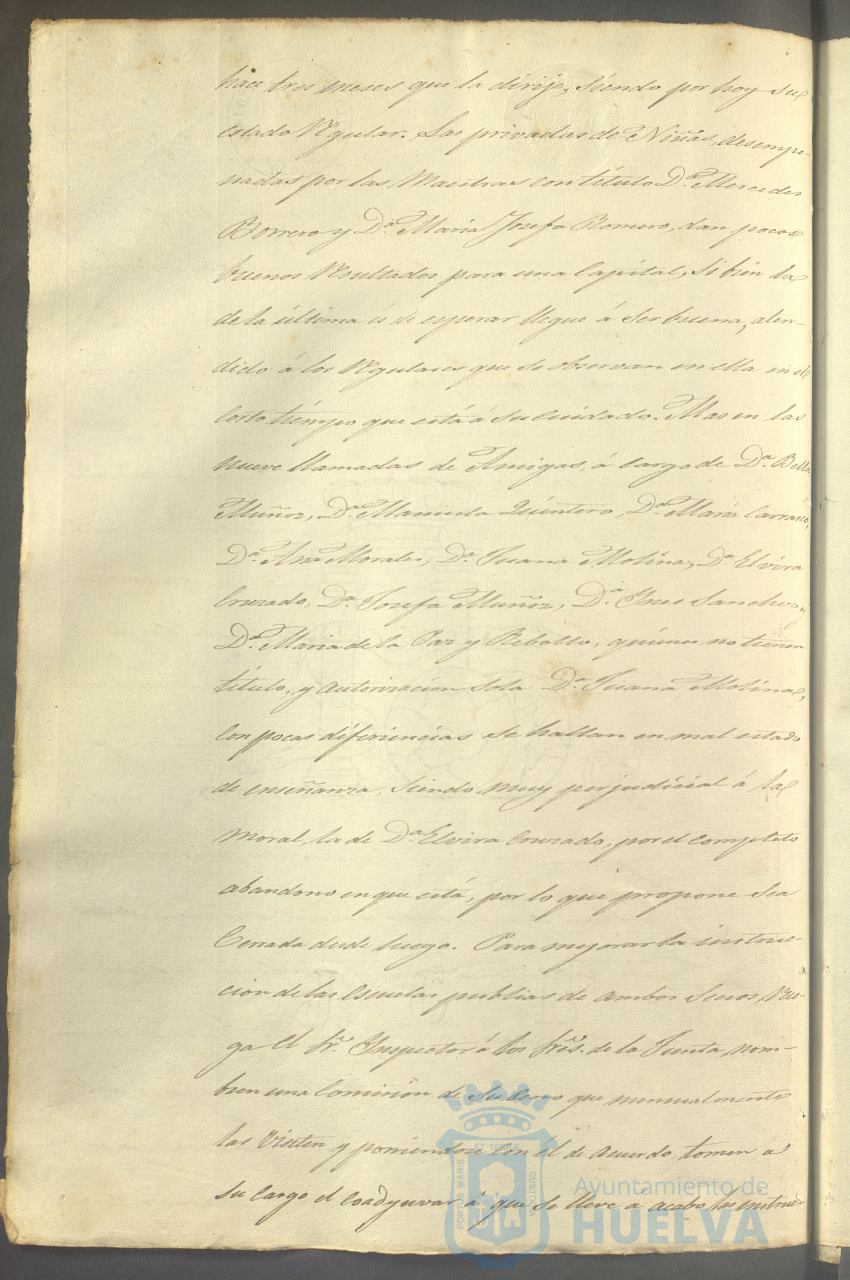 hace tres meses que la dirije, siendo por hoy su
estado regular. Las privadas de Niñas, desempe-
ñadas por las Maestras con título D.ª Mercedes
Borrero y D.ª Maria Josefa Romero, dan pocos
buenos resultados para una Capital, si bien la
de la última es de esperar llegue á ser buena, aten-
dido á los regulares que se observan en ella en el
corto tiempo que está á su cuidado. Mas en las
nueve llamadas de Amigas, á cargo de D.ª Bella
Muñoz, D.ª Manuela Quintero, D.ª Maria Carrasco,
D.ª Ana Morales, D.ª Juana Molina, D.ª Elvira
Cruzado, D.ª Josefa Muñoz, D.ª Ines Sanchez,
D.ª Maria de la Paz y Rebollo, quienes no tienen
título, y autorizacion sola D.ª Juana Molina,
con pocas diferiencias se hallan en mal estado
de enseñanza, siendo muy perjudicial á la
moral, la de D.ª Elvira Cruzado, por el completo
abandono en que está, por lo que propone sea
Cerrada desde luego. Para mejorar la instruc-
cion de las escuelas publias de ambos Sexos, rue-
ga el Sr. Inspector á los Sres. de la Junta, nom-
bren una Comision de su seno que mensualmente
las visiten y poniendose con él de acuerdo tomen á
su cargo el coadyuvar á que se lleve á acabo las instruc
Ayuntamiento de
HUELVA
PORTUS MARIS
ET TERRAE
CUSTODIA